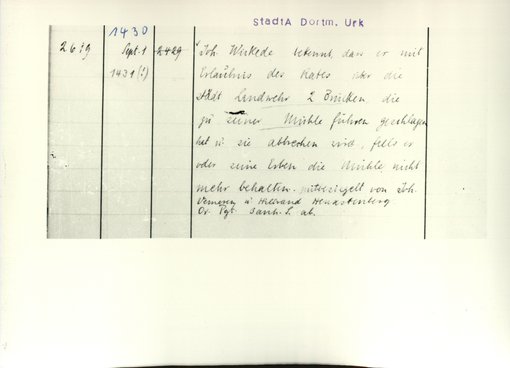 StadtA Dortm. Urk
1430
2619 Sept. 1 2429 "Joh. Wirkede bekennt, dass er mit
1431 (!) Erlaubnis des Rates über die
Stadt Landwehr 2 Brücken, die
zu seiner Mühle führen geschlagen
hat u. sie abbrechen wird, falls er
oder seine Erben die Mühle nicht
mehr behalten. mitbesiegelt von Joh.
u Hildbrand Henxstenberg
Or. Pgt. ab.